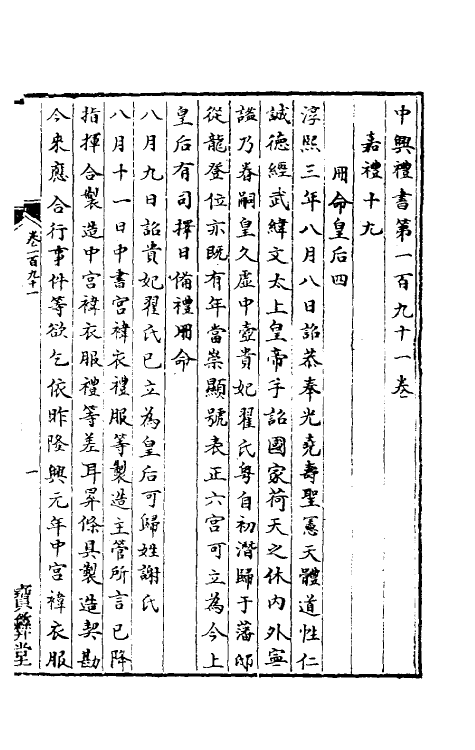 中興禮書第一百九十一卷
嘉禮十九
冊命皇后四
淳熙三年八月八日詔恭奉光堯壽聖憲天體道性仁
誠德經武緯文太上皇帝手詔國家荷天之休內外寧
謐乃眷嗣皇久虛中壼貴妃翟氏粵自初潛歸于藩邸
從龍登位亦既有年當崇顯號表正六宮可立為今上
皇后有司擇日備禮冊命
八月九日詔貴妃翟氏已立為皇后可歸姓謝氏
八月十一日中書宮褘衣禮服等製造主管所言已降
指揮合製造中宮褘衣服禮等差耳昇條具製造契勘
今來應合行事件等欲乞依昨隆興元年中宮褘衣服
卷一百九十一
一
寶彝堂